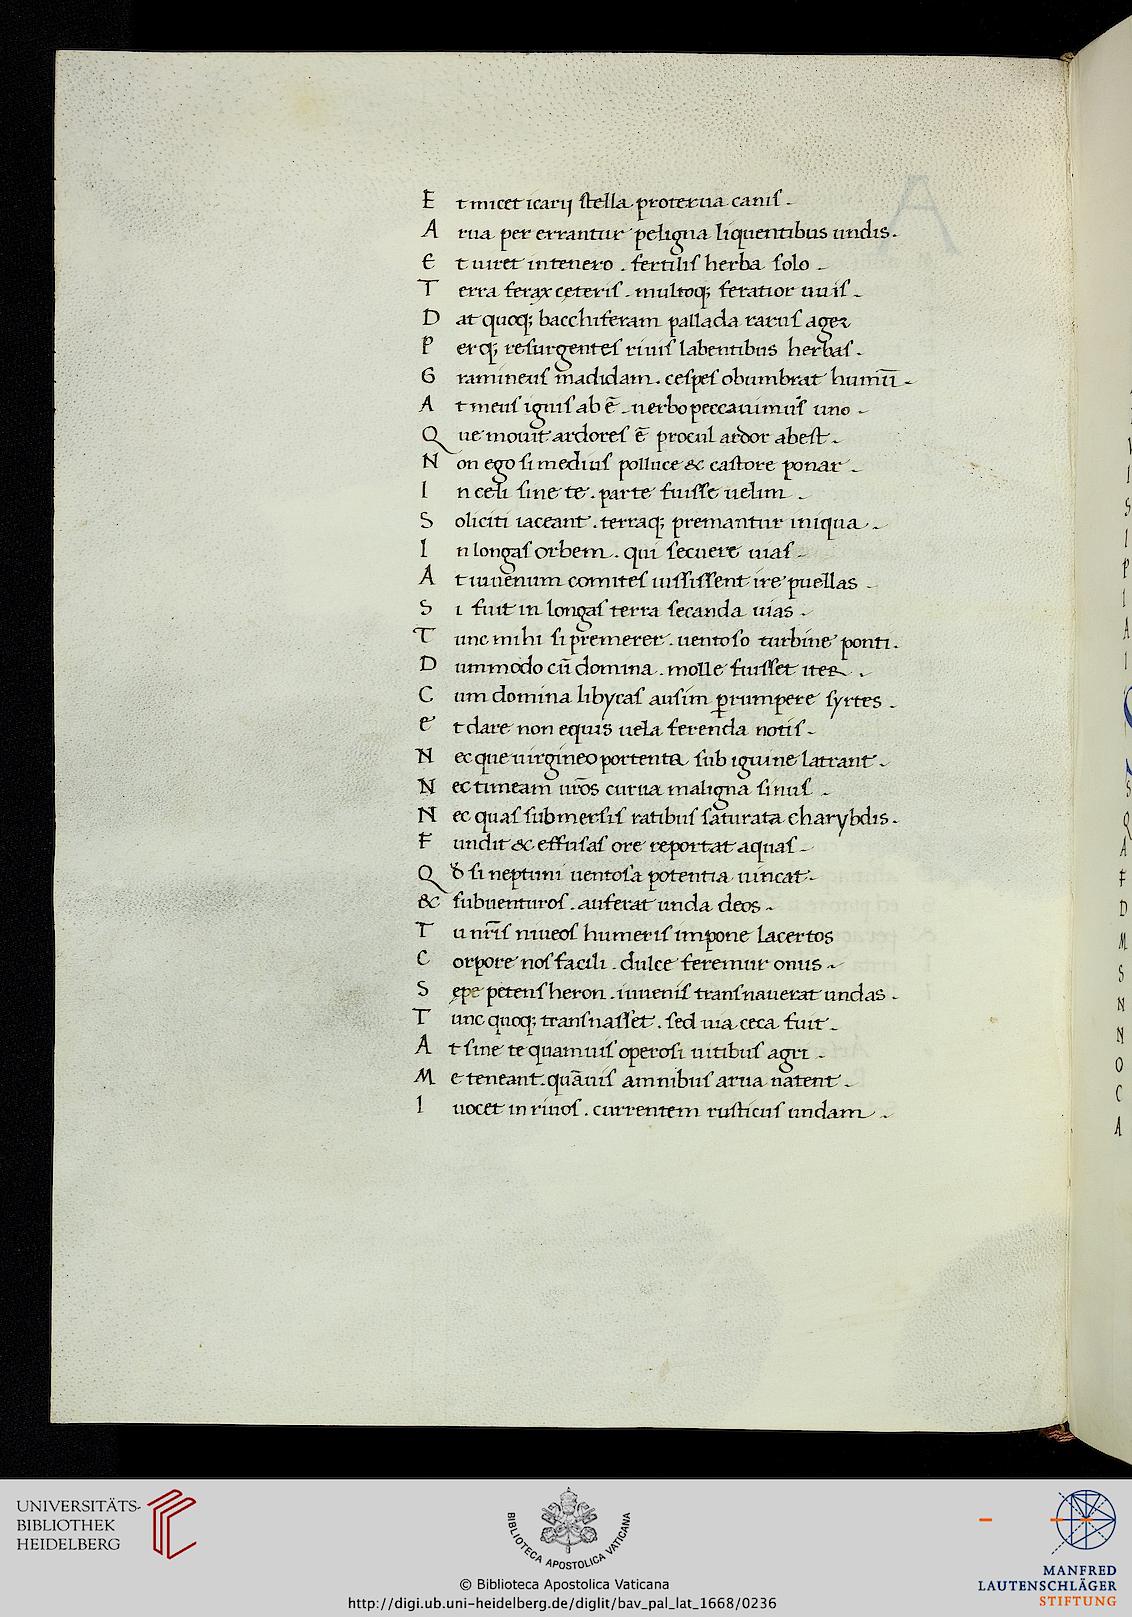 E t micet icarij stella proterua canis.
A rua per errantur peligna liquentibus undis.
E t uiret in tenero . fertilis herba solo .
T erra ferax cęteris . multoq; feratior uuis .
D at quoq; bacchiferam pallada rarus ager
P erq; resurgentes riuis labentibus herbas .
G ramineus madidam . cespes obumbrat humū .
A t meus ignis ab ē . uerbo peccauimus uno .
Q ue mouit ardores ē procul ardor abest .
N on ego si medius polluce & castore ponar .
I n celi sine te . parte fuisse uelim .
S oliciti iaceant . terraq; premantur iniqua .
I n longas orbem . qui secuere uias .
A t iuuenum comites iussissent ire puellas .
S i fuit in longas terra secanda uias .
T unc mihi si premerer . uentoso turbine ponti .
D ummodo cū domina . molle fuisset iter .
C um domina libycas ausim ꝑrumpere syrtes .
E t dare non equis uela ferenda notis .
N ec que uirgineo portenta sub iguine latrant .
N ec timeam ur̄os curua maligna sinus .
N ec quas submersis ratibus saturata charybdis .
F undit & effusas ore reportat aquas .
Q đ si neptuni uentosa potentia uincat .
& subuenturos . auferat unda deos .
T u nr̄is niueos humeris impone lacertos
C orpore nos facili . dulce feremur onus .
S ępe petens heron . iuuenis transnauerat undas .
T unc quoq; transnasset . sed uia ceca fuit .
A t sine te quamuis operosi uitibus agri .
M e teneant . quāuis amnibus arua natent .
I uocet in riuos . currentem rusticus undam .
UNIVERSITÄTS-
BIBLIOTHEK
HEIDELBERG
BIBLIOTECA APOSTOLICA VATICANA
© Biblioteca Apostolica Vaticana
http://digi.ub.uni-heidelberg.de/diglit/bav_pal_lat_1668/0236
MANFRED
LAUTENSCHLÄGER
STIFTUNG